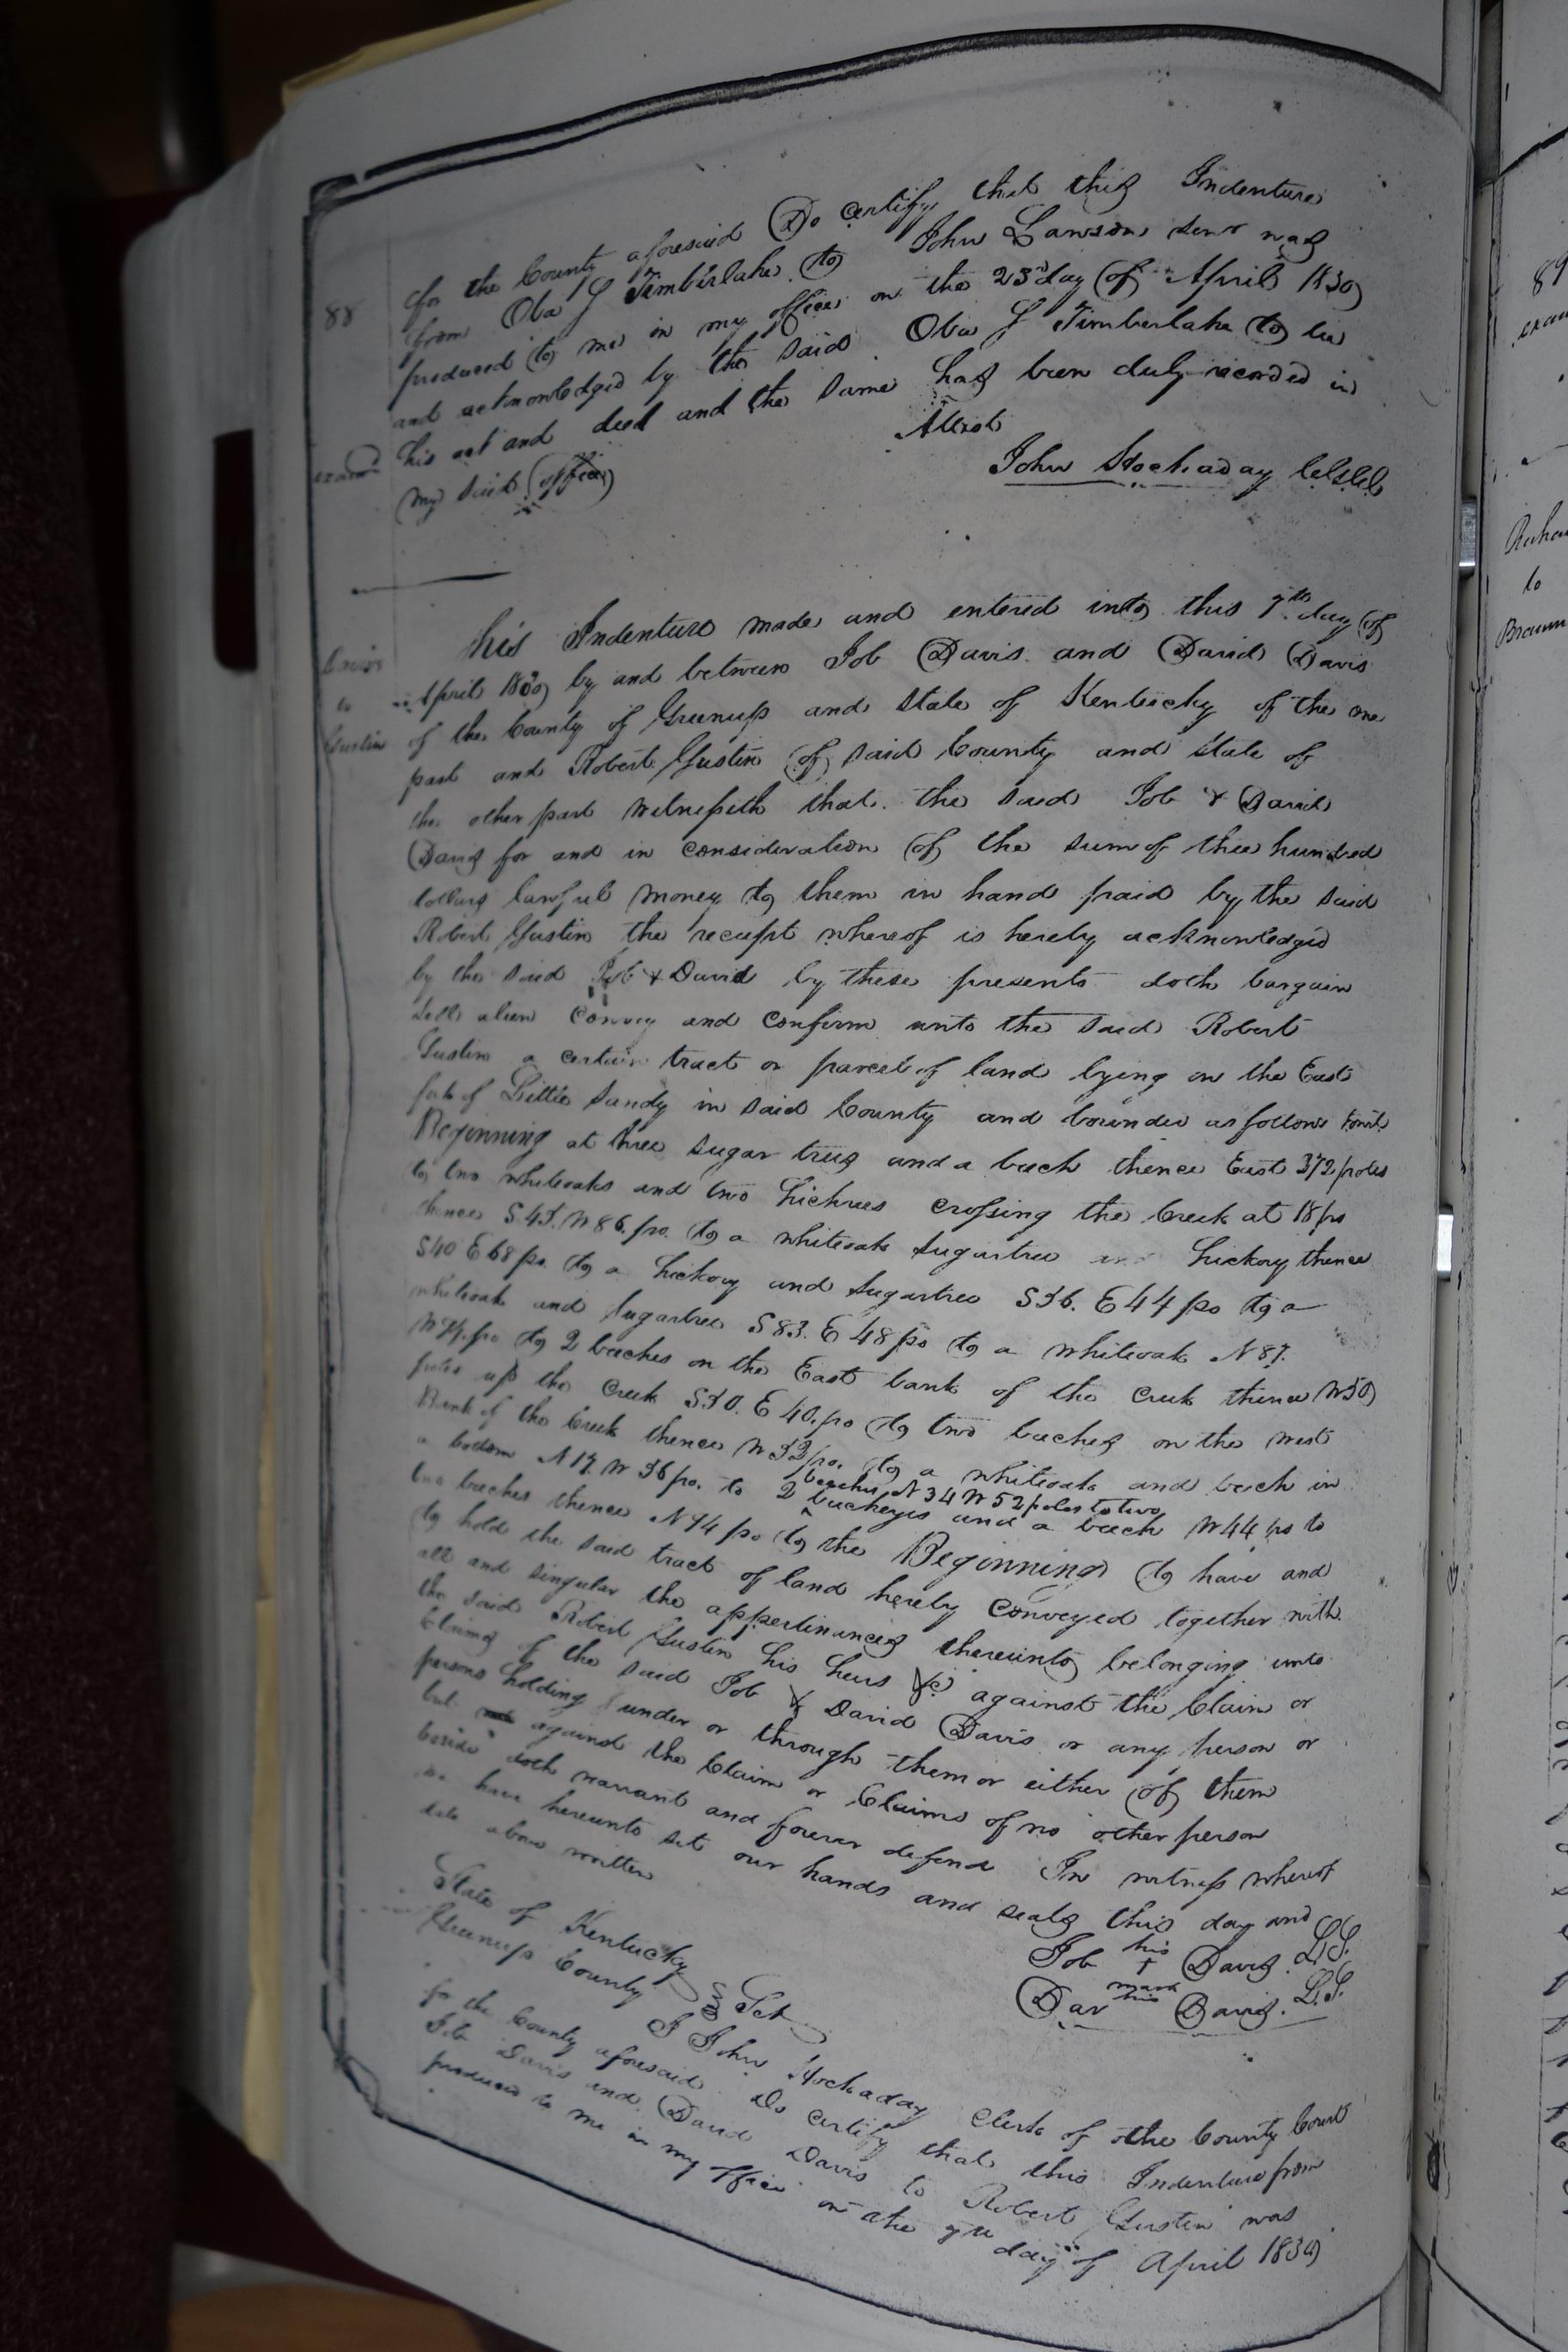 88
for the County aforesaid Do certify that this Indenture
from Oba G Timberlake to John Lawson senr was
produced to me in my office on the 23rd day of April 1830
and acknowledged by the said Oba G Timberlake to be
his act and deed and the same has been duly recorded in
my said office
Attest
John Hockaday
Davis
to
Gustin
This Indenture made and entered into this 7th day of
April 1830 by and between Job Davis and David Davis
of the County of Greenup and State of Kentucky of the one
part and Robert Gustin of said County and State of
the other part Witnesseth that the said Job & David
Davis for and in consideration of the sum of three hundred
dollars lawful money to them in hand paid by the said
Robert Gustin the receipt whereof is hereby acknowledged
by the said Job & David by these presents doth bargain
sell alien Convey and Confirm unto the said Robert
Gustin a certain tract or parcel of land lying on the East
fork of Little Sandy in said County and bounded as follows
Beginning at three sugar trees and a beech thence East 372 poles
to two whiteoaks and two hickrees crossing the Creek at 18 po
thence S. 45. W 86. po. to a whiteoak Sugartree and hickory thence
S40 E 68 po. to a hickory and Sugartree S36. E 44 po to a
whiteoak and Sugartree S 83. E 48 po to a whiteoak N 87.
W 74. po to 2 beeches on the East bank of the Creek thence W 50
poles up the Creek S30. E 40. po to two beeches on the West
Bank of the Creek thence W 32 po. to a whiteoak and beech in
a bottom N 17. W 36 po. to 2 beeches N 34 W 52 poles to two
buckeyes and a beech W 44 po to
two beeches thence N 74 po to the Beginning to have and
to hold the said tract of land hereby Conveyed together with
all and singular the appertinances thereunto belonging unto
the said Robert Gustin his heirs &c against the Claim or
Claims of the said Job & David Davis or any person or
persons holding under or through them or either of them
but against the Claim or Claims of no other person
beside doth warrant and forever defend In witness whereof
we have hereunto set our hands and seals this day and
date above written
Job his + mark Davis. L.S.
Dav his Davis. L.S.
State of Kentucky
Greenup County Sct
I John Hockaday Clerk of the County Court
for the County aforesaid Do certify that this Indenture from
Job Davis and David Davis to Robert Gustin was
produced to me in my office on the 7th day of April 1830